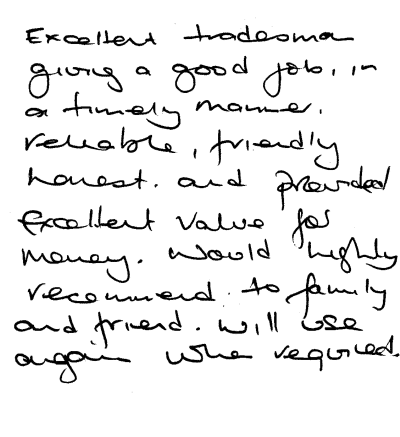 Excellent tradesman
giving a good job, in
a timely manner.
reliable, friendly
honest. and provided
Excellent value for
money. Would highly
recommend to family
and friend. Will use
angain when required.